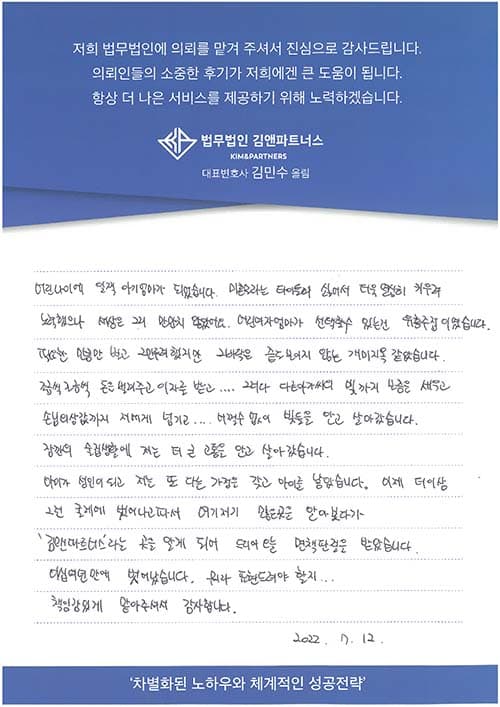 저희 법무법인에 의뢰를 맡겨 주셔서 진심으로 감사드립니다.
의뢰인들의 소중한 후기가 저희에겐 큰 도움이 됩니다.
항상 더 나은 서비스를 제공하기 위해 노력하겠습니다.
법무법인 김앤파트너스
KIM&PARTNERS
대표변호사 김민수 올림
어린나이에 일찍 아기엄마가 되었습니다. 미혼모라는 타이틀이 싫어서 더욱 열심히 키우려
노력했으나 세상은 그리 만만치 않았어요. 어린여자엄마가 선택할수 있는건 유흥주점이었습니다.
필요한 만큼만 벌고 그만두려했지만 그바닥은 좀도 보이지 않는 개미지옥 같았습니다.
조금씩 조금씩 돈은 빌려주고 이자를 받고.... 그러다 다른아가씨의 빚까지 보증을 세우고
손님외상값까지 저에게 넘기고.... 어쩔수 없이 빚들을 안고 살아갔습니다.
잠깐의 술집생활에 저는 더 큰 고통을 안고 살아갔습니다.
아이가 성인이 되고 저는 또 다른 가정을 갖고 아이를 낳았습니다. 이제 더이상
그런 굴레에 벗어나고파서 여기저기 알아보다가
'김앤파트너스'라는 곳을 알게 되어 드디어 오늘 면책판정을 받았습니다.
벗어났습니다. 뭐라 표현드려야 할지...
책임감있게 맡아주셔서 감사합니다.
2022. 7. 12.
'차별화된 노하우와 체계적인 성공전략'